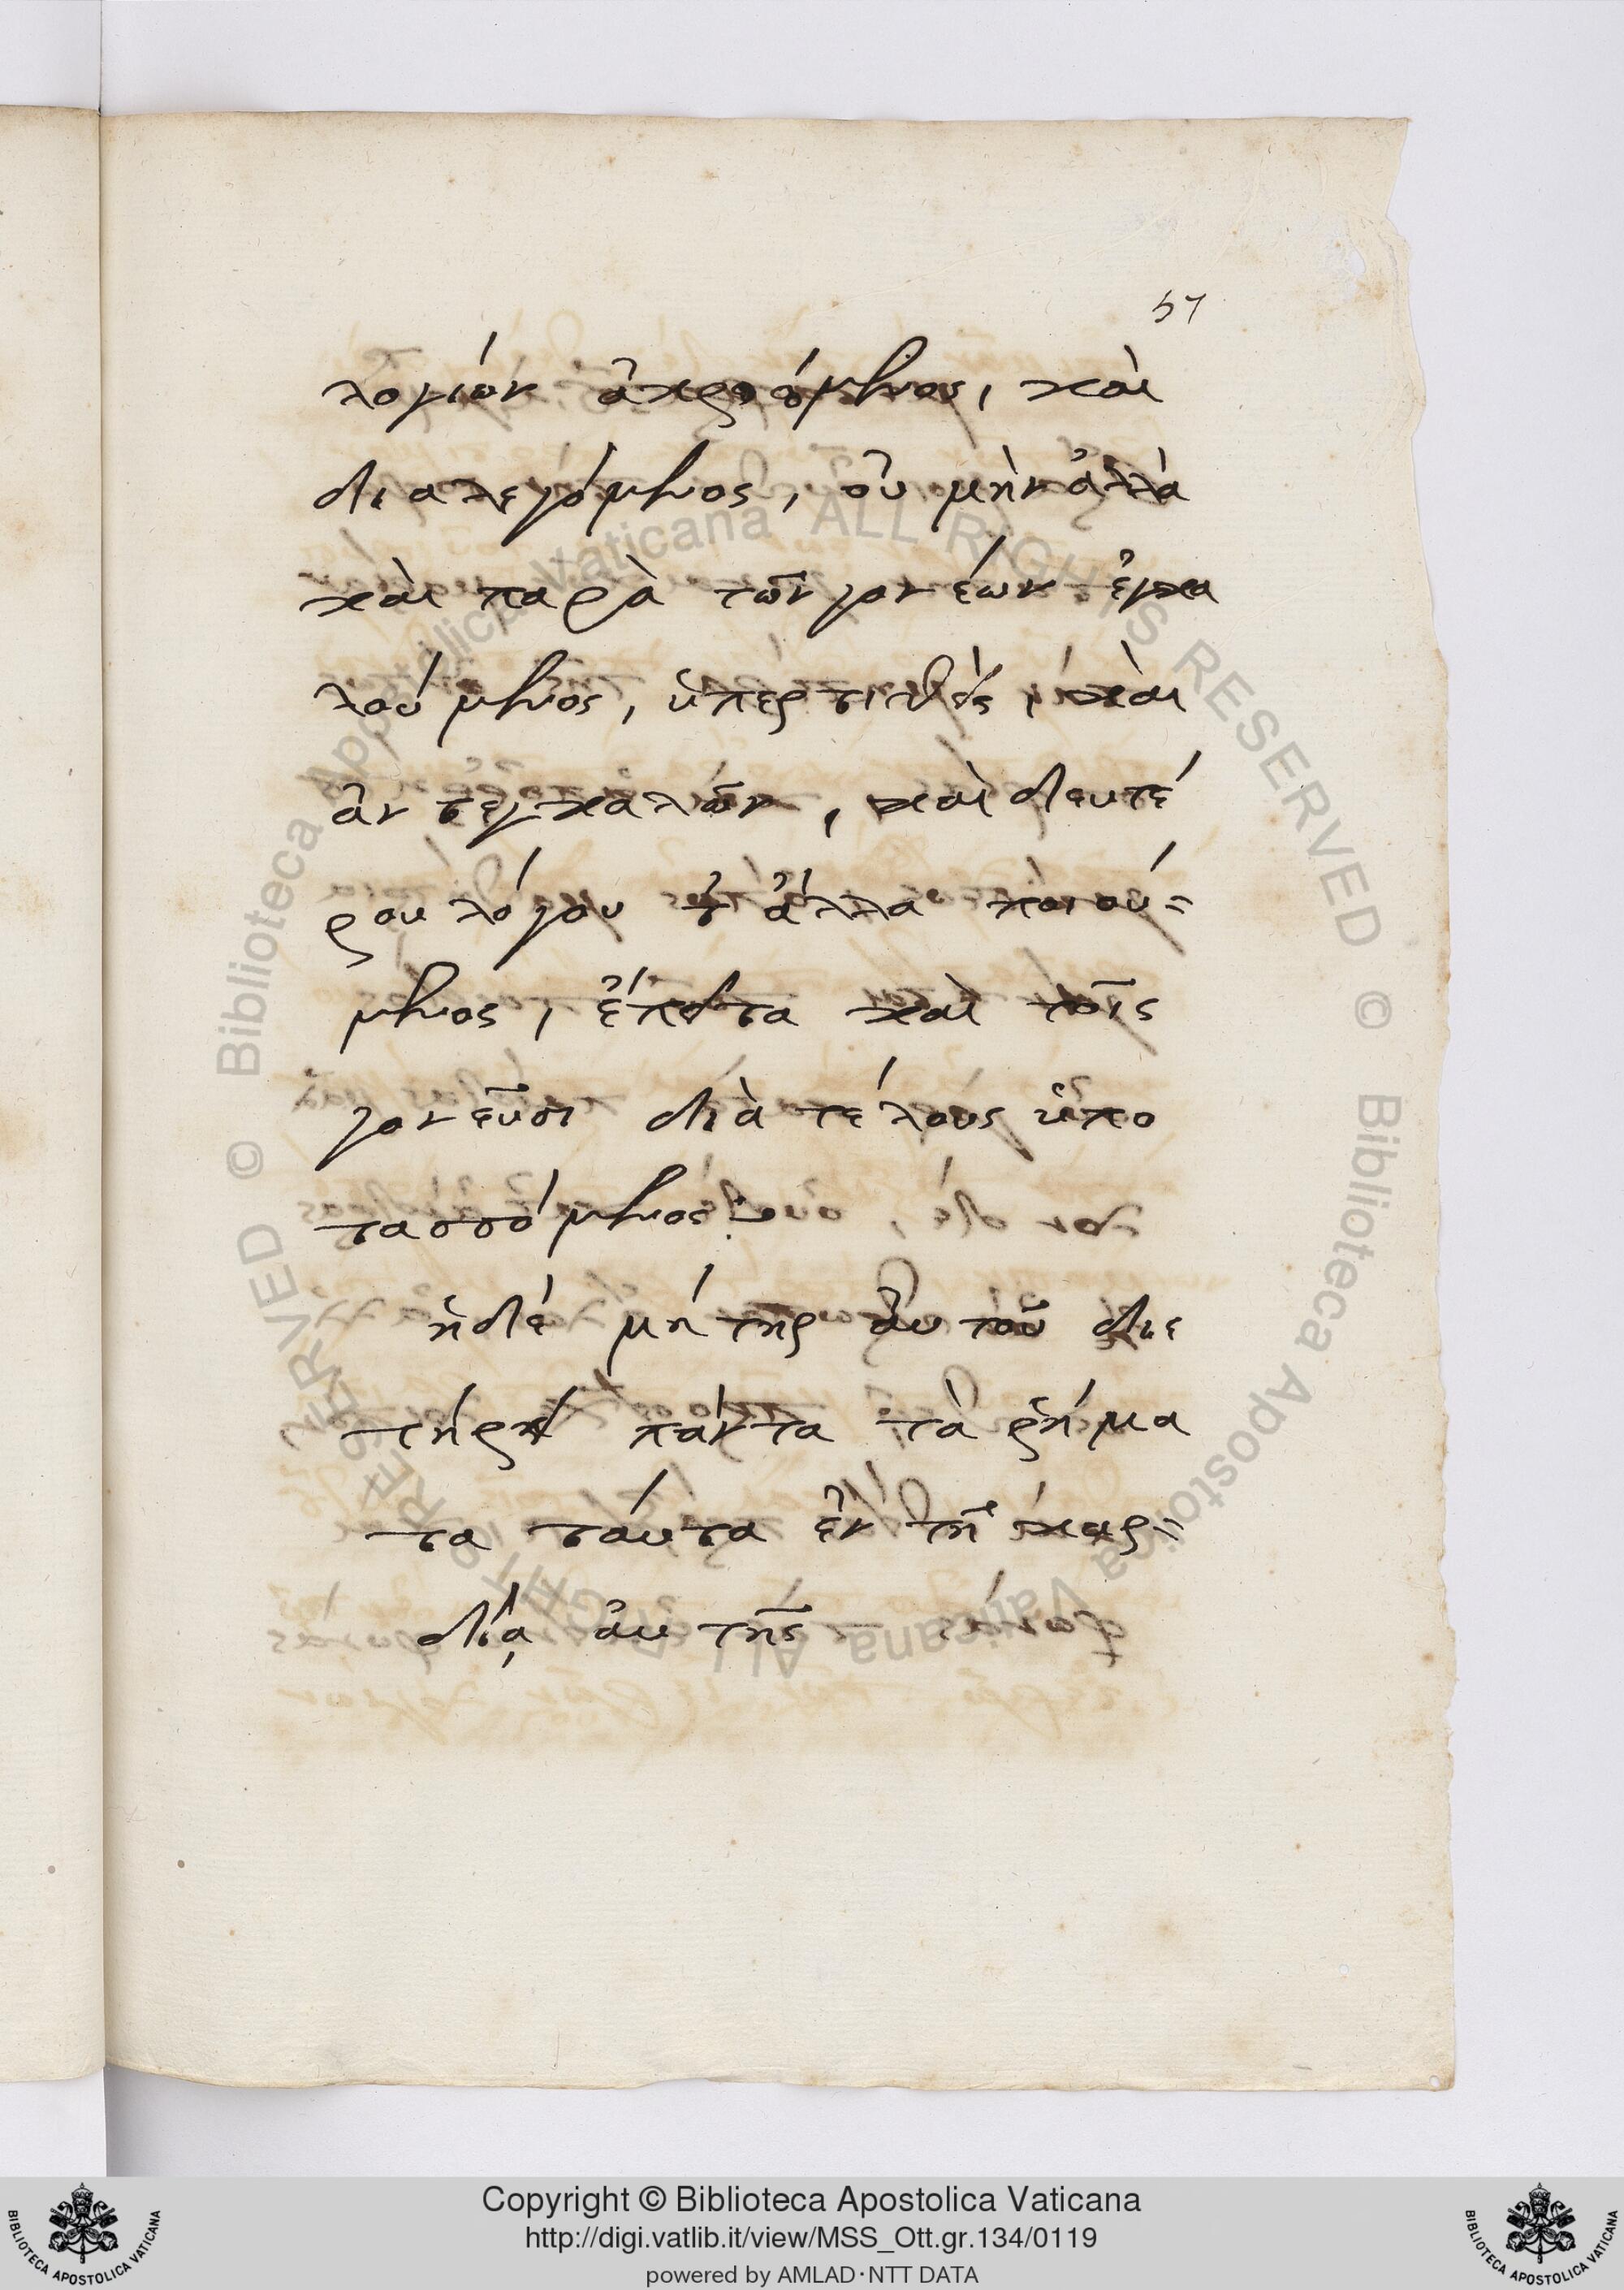 57
λογίων ἀκροώμενος, καὶ
διαλεγόμενος, οὐ μὴν ἀλλὰ
καὶ παρὰ τῶν γονέων ἐγκα
λούμενος, ὑπερτιθεὶς, καὶ
ἀντεγκαλῶν, καὶ δευτέ
ρου λόγου τ' ἄλλα ποιού=
μενος, ἔπειτα καὶ τοῖς
γονεῦσι διὰ τέλους ὑπο
τασσόμενος:
ἡ δὲ μήτηρ αὐτοῦ διε
τήρει πάντα τὰ ῥήμα
τα ταύτα ἐν τῇ καρ=
δίᾳ αὐτῆς
© Biblioteca Apostolica Vaticana ALL RIGHTS RESERVED
© Biblioteca Apostolica Vaticana ALL RIGHTS RESERVED
Copyright © Biblioteca Apostolica Vaticana
http://digi.vatlib.it/view/MSS_Ott.gr.134/0119
powered by AMLAD·NTT DATA
BIBLIOTECA APOSTOLICA VATICANA
BIBLIOTECA APOSTOLICA VATICANA